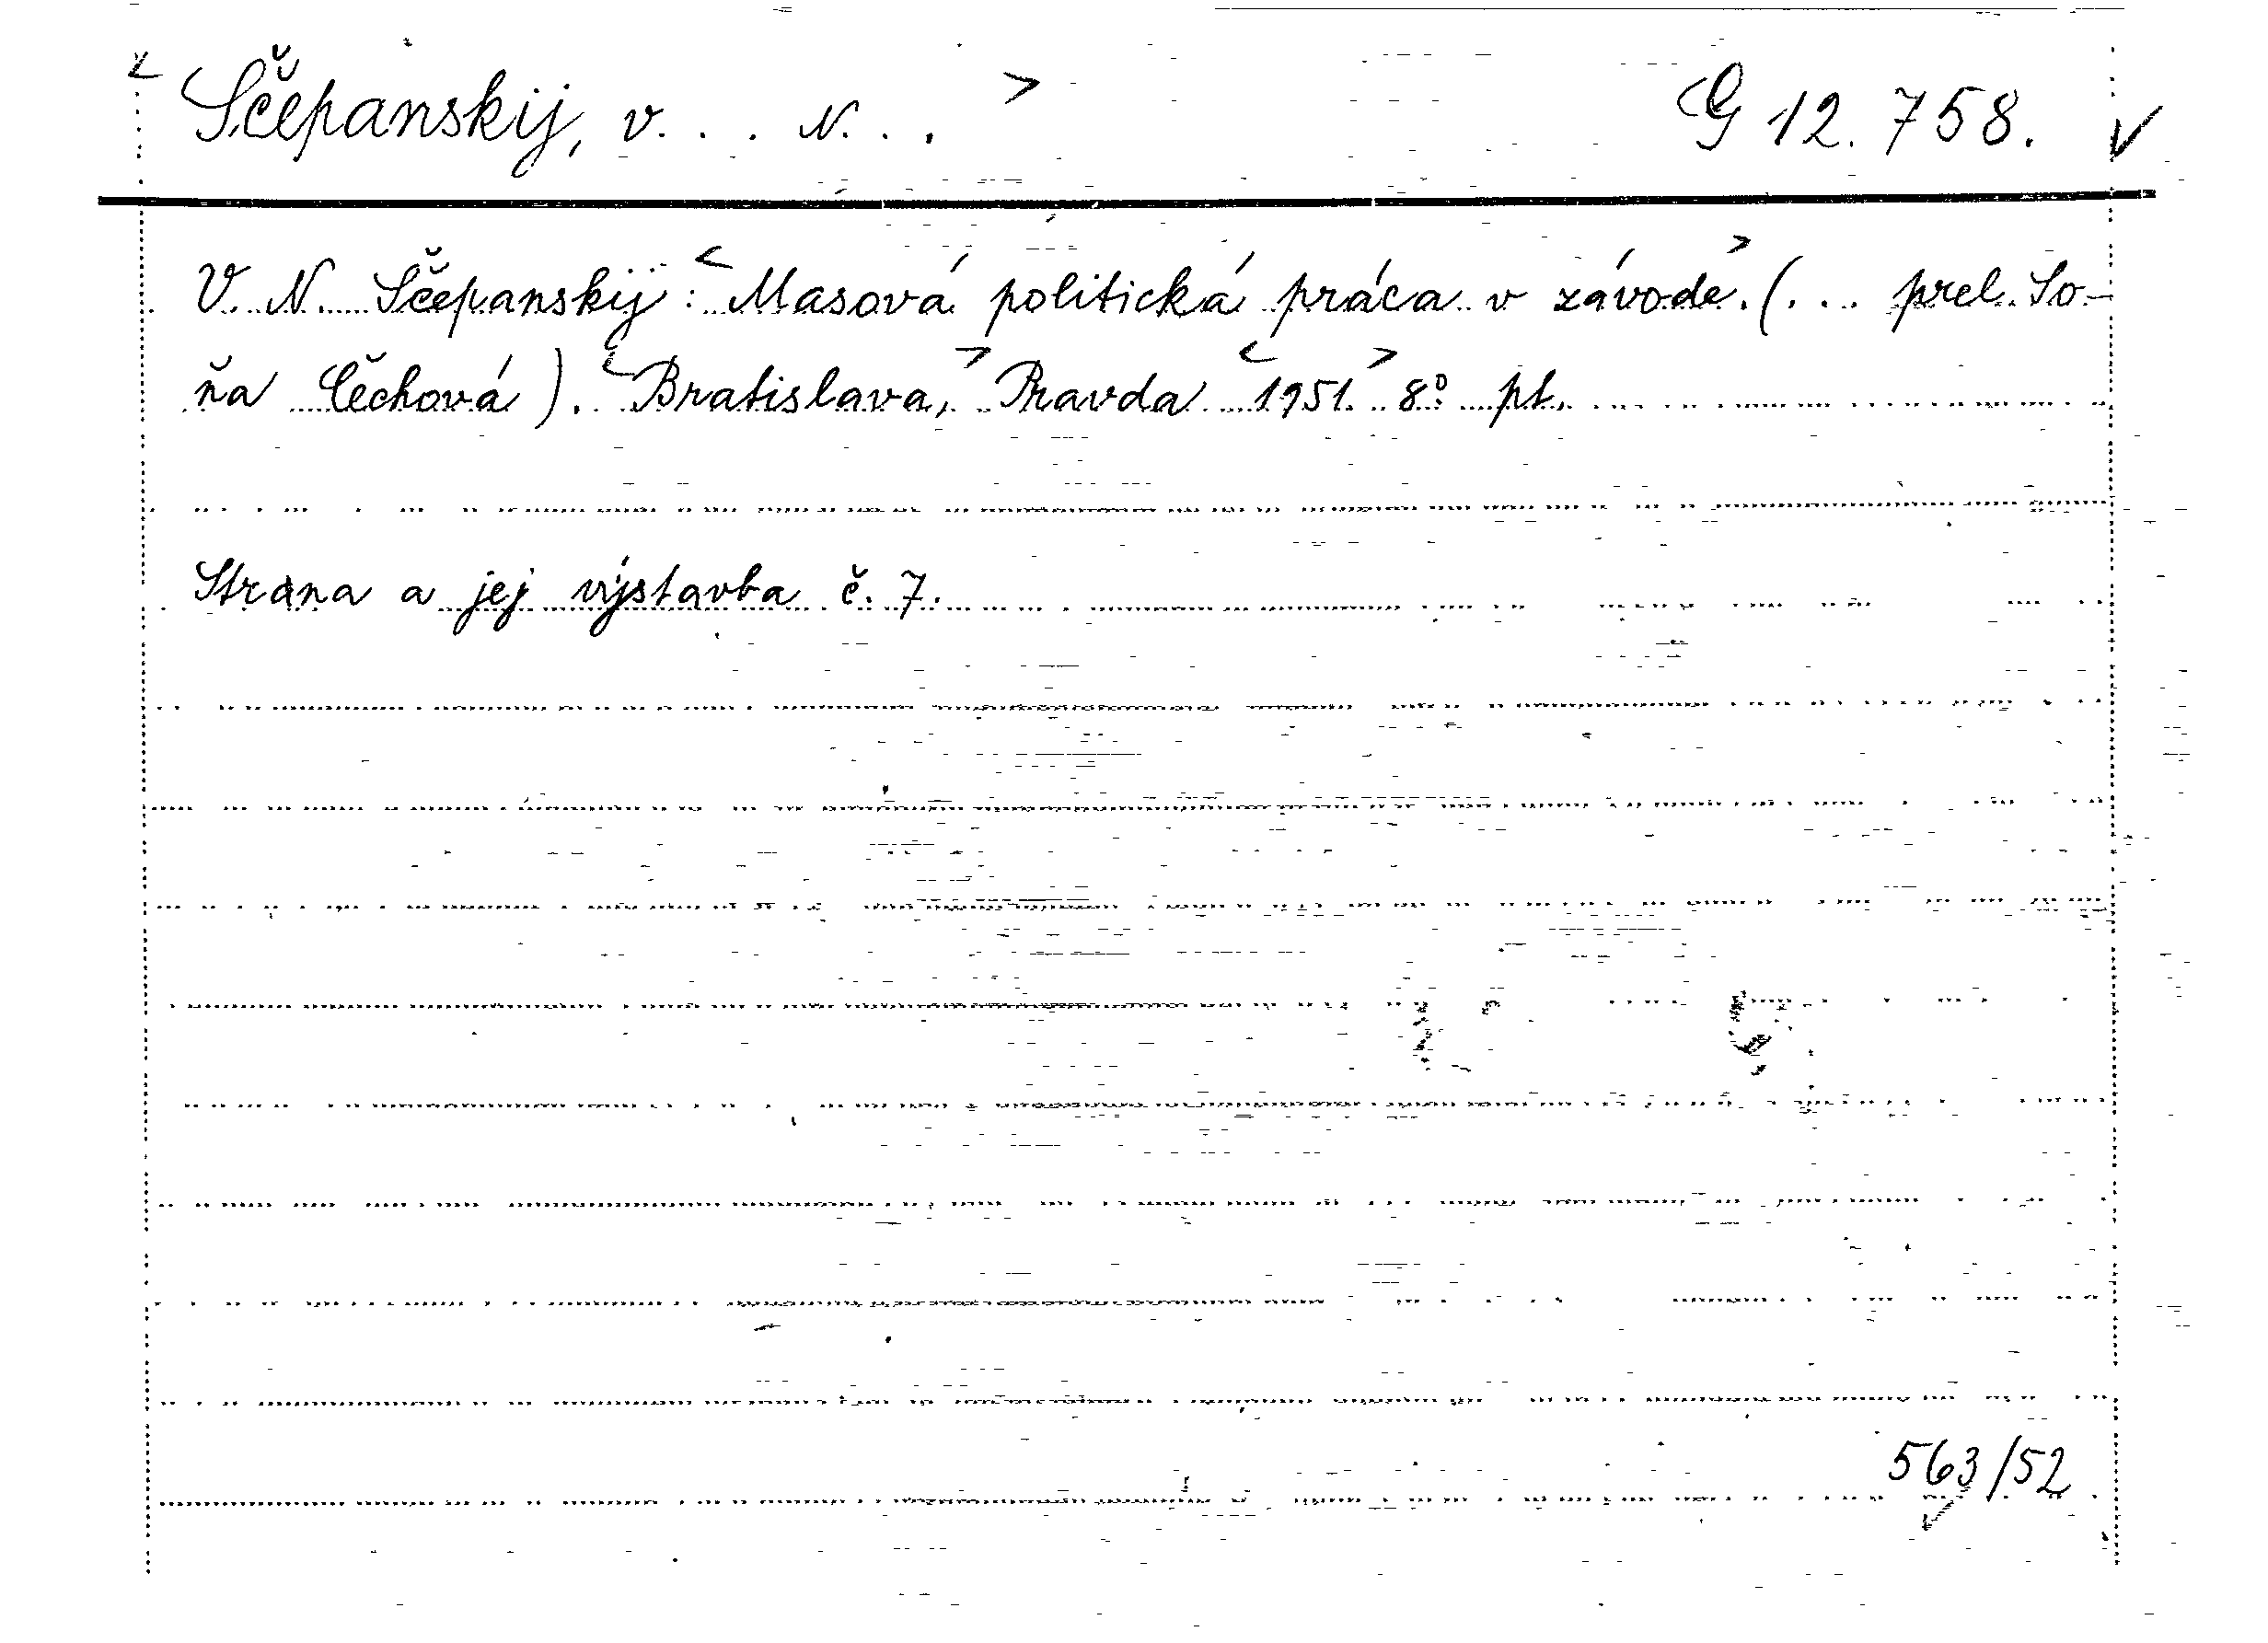 < Ščepanskij, V. . . N. . . > G 12.758. ✓
V. N. Ščepanskij: <Masová politická práca v závode.> (... prel. So-
ňa Čechová). <Bratislava,> Pravda <1951.> 8° pt.
Strana a jej výstavba č. 7.
563/52